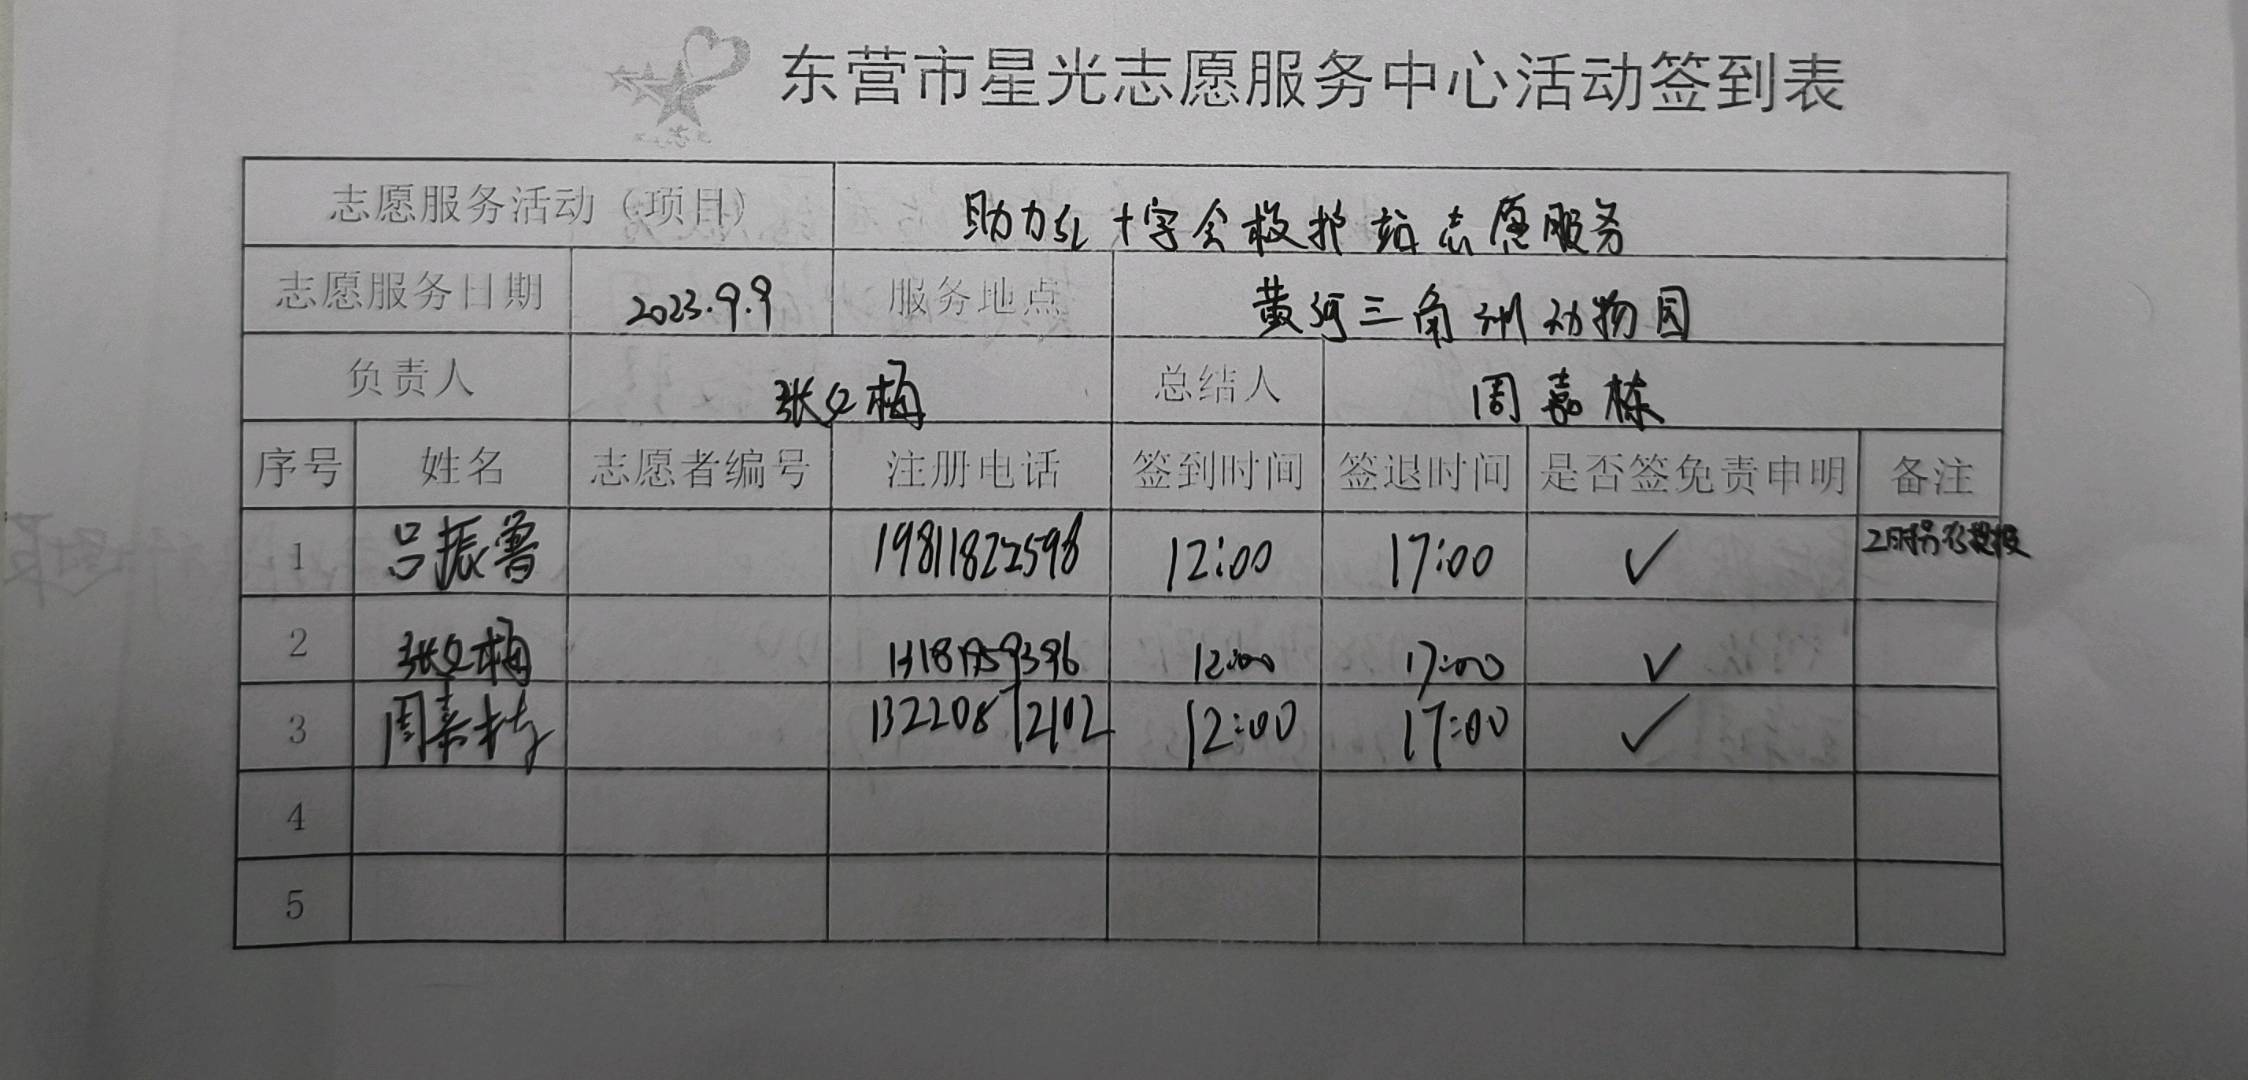 东营市星光志愿服务中心活动签到表
志愿服务活动（项目） 助力红十字会救护站志愿服务
志愿服务日期 2023.9.9 服务地点 黄河三角洲动物园
负责人 张文梅 总结人 周嘉栋
序号 姓名 志愿者编号 注册电话 签到时间 签退时间 是否签免责申明 备注
1 吕振鲁 19811822598 12:00 17:00 ✓
2 张文梅 12:00 17:00 ✓
3 周嘉栋 13220872102 12:00 17:00 ✓
4
5